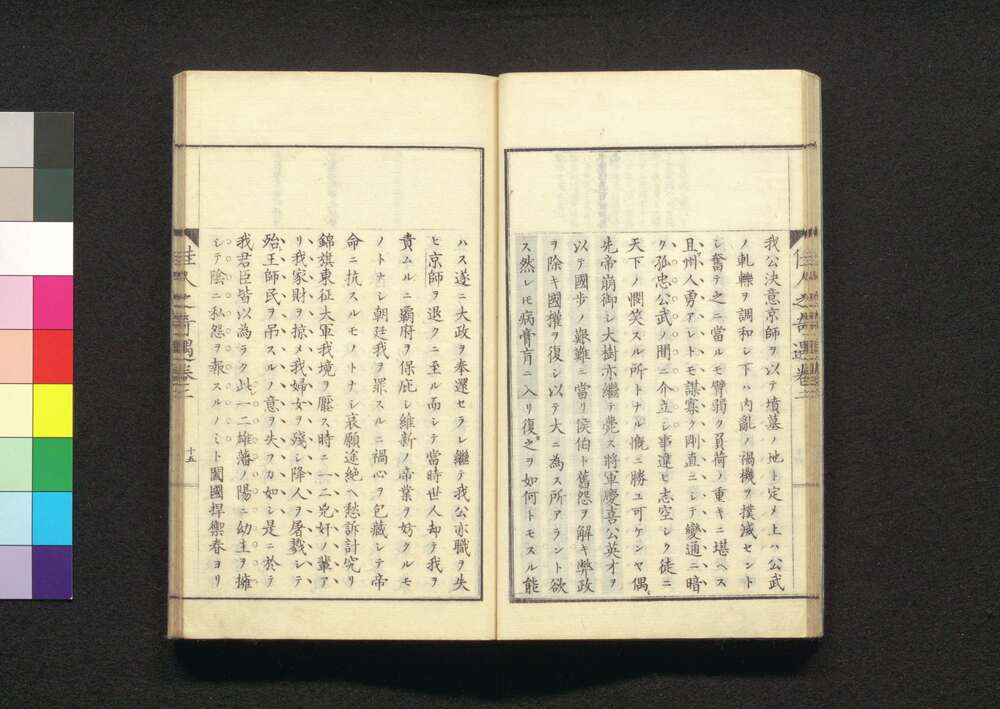 我公決意京師ヲ以テ墳墓ノ地ト定メ上ハ公武
ノ軋轢ヲ調和シ下ハ內亂ノ禍機ヲ撲滅セント
シ奮テ之ニ當ルモ臂弱ク負荷ノ重キニ堪ヘス
且州人勇アレトモ謀寡ク剛直ニシテ變通ニ暗
ク孤忠公武ノ間ニ介立シ事違ヒ志空シク徒ニ
天下ノ憫笑スル所トナル慨ニ勝ユ可ケンヤ偶
先帝崩御シ大樹亦繼テ薨ス將軍慶喜公英才ヲ
以テ國步ノ艱難ニ當リ侯伯ト舊怨ヲ解キ弊政
ヲ除キ國權ヲ復シ以テ大ニ為ス所アラント欲
ス然レモ病膏肓ニ入リ復之ヲ如何トモスル能
佳人之奇遇卷三
ハス遂ニ大政ヲ奉還セラレ繼テ我公亦職ヲ失
ヒ京師ヲ退クニ至ル而シテ當時世人却テ我ヲ
責ムルニ覇府ヲ保庇シ維新ノ帝業ヲ妨クルモ
ノトナシ朝廷我ヲ罪スルニ禍心ヲ包藏シテ帝
命ニ抗スルモノトナシ哀願途絕ヘ愁訴計究リ
錦旗東征大軍我境ヲ壓ス時ニ一二兇奸ノ輩ア
リ我家財ヲ掠メ我婦女ヲ殘シ降人ヲ屠戮シテ
殆王師民ヲ吊スルノ意ヲ失フカ如シ是ニ於テ
我君臣皆以為ラク此一二雄藩ノ陽ニ幼主ヲ擁
シテ陰ニ私怨ヲ報スルノミト闔國捍禦春ヨリ
佳人之奇遇卷三
十五